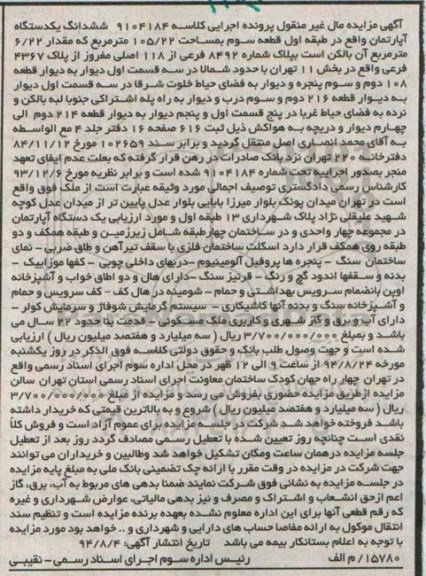 آگهی مزایده مال غیر منقول پرونده اجرایی کلاسه ۹۱۰۴۱۸۴ ششدانگ یکدستگاه
آپارتمان واقع در طبقه اول قطعه سوم بمساحت ۱۰۵/۲۲ مترمربع که مقدار ۶/۲۲
مترمربع آن بالکن است بپلاک شماره ۸۴۹۲ فرعی از ۱۱۸ اصلی مفروز از پلاک ۴۳۶۷
فرعی واقع در بخش ۱۱ تهران با حدود شمالا در سه قسمت اول دیوار به دیوار قطعه
۱۰۸ دوم و سوم پنجره و دیوار به فضای حیاط خلوت شرقا در سه قسمت اول دیوار
به دیوار قطعه ۲۱۶ دوم و سوم درب و دیوار به راه پله اشتراکی جنوبا لبه بالکن و
نرده به فضای حیاط غربا در پنج قسمت اول و پنجم دیوار به دیوار قطعه ۲۱۴ دوم الی
چهارم دیوار و دریچه به هواکش ذیل ثبت ۶۱۶ صفحه ۱۶ دفتر جلد ۴ مع الواسطه
به آقای محمد انصاری اصل منتقل گردید و برابر سند ۱۰۲۶۵۹ مورخ ۸۴/۱۱/۱۲
دفترخانه ۲۲۰ تهران نزد بانک صادرات در رهن قرار گرفته که بعلت عدم ایفای تعهد
منجر بصدور اجراییه تحت شماره ۹۱۰۴۱۸۴ شده است و برابر نظریه مورخ ۹۳/۱۲/۶
کارشناس رسمی دادگستری توصیف اجمالی مورد وثیقه عبارت است از ملک فوق واقع
است در تهران میدان پونک بلوار میرزا بابایی بلوار عدل پایین تر از میدان عدل کوچه
شهید علیقلی نژاد پلاک شهرداری ۱۳ طبقه اول و مورد ارزیابی یک دستگاه آپارتمان
در مجموعه چهار واحدی و در ساختمان چهارطبقه شامل زیرزمین و طبقه همکف و دو
طبقه روی همکف قرار دارد اسکلت ساختمان فلزی با سقف تیرآهن و طاق ضربی - نمای
ساختمان سنگ - پنجره ها پروفیل آلومینیوم -دربهای داخلی چوبی - کفها موزاییک -
بدنه و سقفها اندود گچ و رنگ - قرنیز سنگ -دارای هال و دو اطاق خواب و آشپزخانه
اوپن بانضمام سرویس بهداشتی و حمام - شومینه در هال کف - کف سرویس و حمام
و آشپزخانه سنگ و بدنه آنها کاشیکاری - سیستم گرمایش شوفاژ و سرمایش کولر -
دارای آب و برق و گاز شهری و کاربری ملک مسکونی - قدمت بنا حدود ۲۲ سال می
باشد و بمبلغ ۳/۷۰۰/۰۰۰/۰۰۰ ریال ( سه میلیارد و هفتصد میلیون ریال ) ارزیابی
شده است و جهت وصول طلب بانک و حقوق دولتی کلاسه فوق الذکر در روز یکشنبه
مورخه ۹۴/۸/۲۴ از ساعت ۹ الی ۱۲ ظهر در محل اداره سوم اجرای اسناد رسمی واقع
در تهران چهار راه جهان کودک ساختمان معاونت اجرای اسناد رسمی استان تهران سالن
مزایده ازطریق مزایده حضوری بفروش می رسد و مزایده از مبلغ ۳/۷۰۰/۰۰۰/۰۰۰
ریال ( سه میلیارد و هفتصد میلیون ریال ) شروع و به بالاترین قیمتی که خریدار داشته
باشد فروخته خواهد شد شرکت در جلسه مزایده برای عموم آزاد است و فروش کلاً
نقدی است چنانچه روز تعیین شده با تعطیل رسمی مصادف گردد روز بعد از تعطیل
جلسه مزایده درهمان ساعت ومکان تشکیل خواهد شد وطالبین و خریداران می توانند
جهت شرکت در مزایده در وقت مقرر با ارائه چک تضمینی بانک ملی به مبلغ پایه مزایده
در جلسه مزایده به نشانی فوق شرکت نمایند ضمنا بدهی های مربوط به آب، برق، گاز
اعم ازحق انشعاب و اشتراک و مصرف و نیز بدهی مالیاتی، عوارض شهرداری و غیره
که رقم قطعی آنها برای این اداره معلوم نشده بعهده برنده مزایده است و تنظیم سند
انتقال موکول به ارائه مفاصا حساب های دارایی و شهرداری و .. خواهد بود مورد مزایده
با توجه به اعلام بستانکار بیمه می باشد تاریخ انتشار آگهی: ۹۴/۸/۴
۱۵۷۸۰/ م الف رئیس اداره سوم اجرای اسناد رسمی - نقیبی